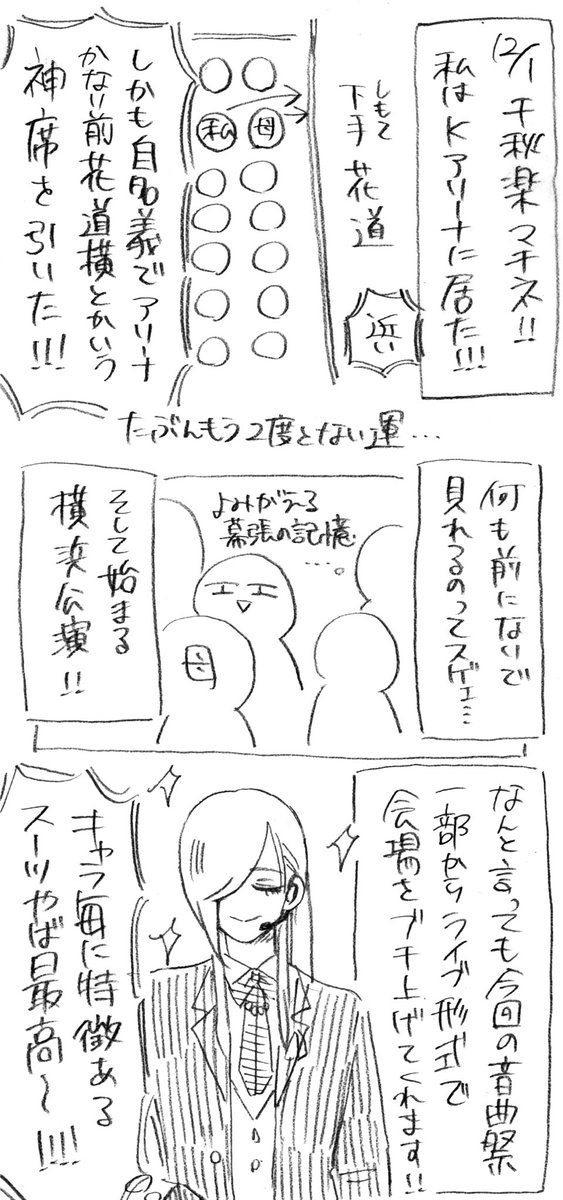 12/1 千秋楽マチネ!!
私はKアリーナに居た!!!
しもて
下手 花道
近い
私
母
しかも自名義でアリーナ
かなり前花道横とかいう
神席を引いた!!!
たぶんもう2度とない運…
何も前にないで
見れるのってスゲェ…
よみがえる
幕張の記憶
…。
母
そして始まる
横浜公演!!
なんと言っても今回の音曲祭
一部からライブ形式で
会場をブチ上げてくれます!!
キャラ毎に特徴ある
スーツやば最高〜!!!!